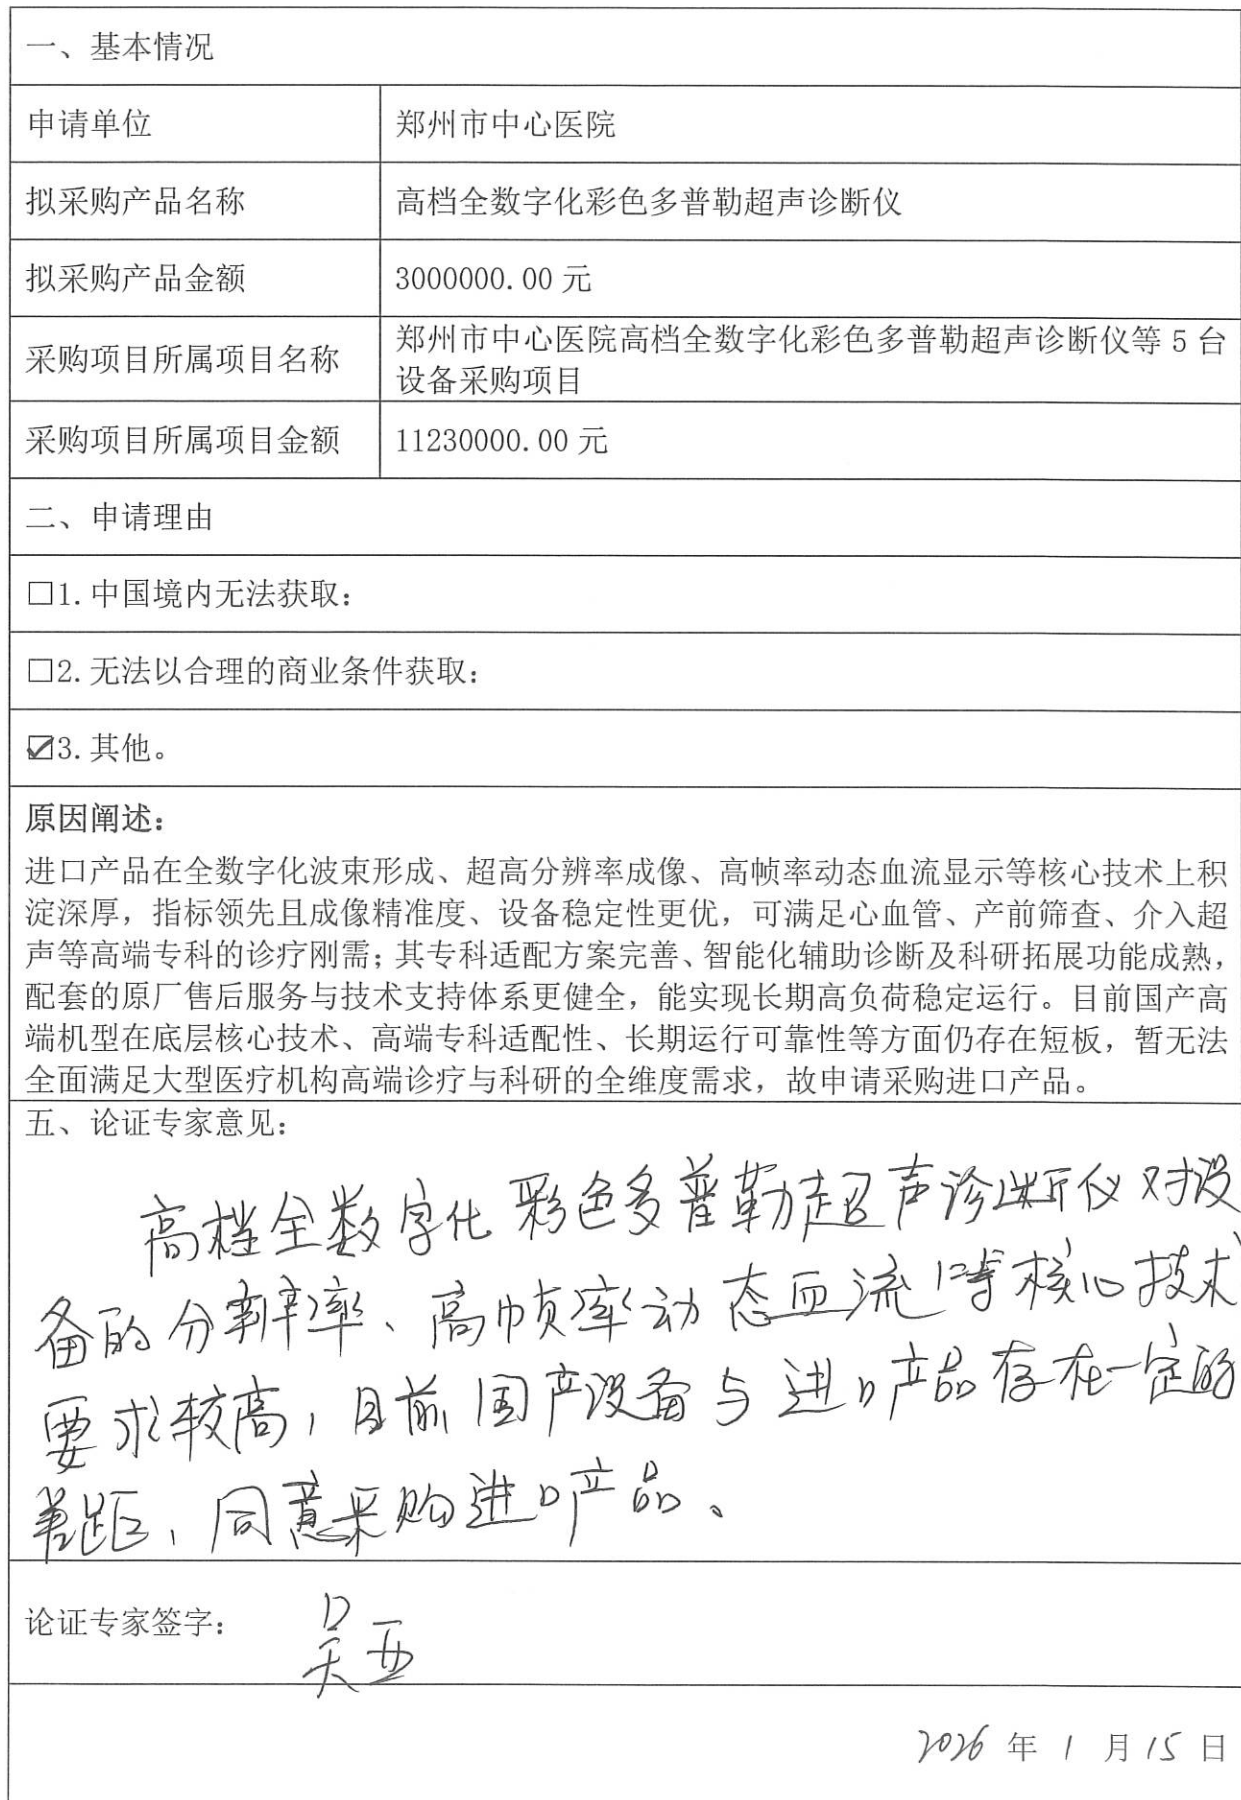 一、基本情况
申请单位 郑州市中心医院
拟采购产品名称 高档全数字化彩色多普勒超声诊断仪
拟采购产品金额 3000000.00 元
采购项目所属项目名称 郑州市中心医院高档全数字化彩色多普勒超声诊断仪等 5 台
设备采购项目
采购项目所属项目金额 11230000.00 元
二、申请理由
□1.中国境内无法获取：
□2.无法以合理的商业条件获取：
☑3.其他。
原因阐述：
进口产品在全数字化波束形成、超高分辨率成像、高帧率动态血流显示等核心技术上积
淀深厚，指标领先且成像精准度、设备稳定性更优，可满足心血管、产前筛查、介入超
声等高端专科的诊疗刚需；其专科适配方案完善、智能化辅助诊断及科研拓展功能成熟，
配套的原厂售后服务与技术支持体系更健全，能实现长期高负荷稳定运行。目前国产高
端机型在底层核心技术、高端专科适配性、长期运行可靠性等方面仍存在短板，暂无法
全面满足大型医疗机构高端诊疗与科研的全维度需求，故申请采购进口产品。
五、论证专家意见：
高档全数字化彩色多普勒超声诊断仪对设
备的分辨率、高帧率动态血流等核心技术
要求较高，目前国产设备与进口产品存在一定的
差距，同意采购进口产品。
论证专家签字： 吴亚
2026 年 1 月 15 日